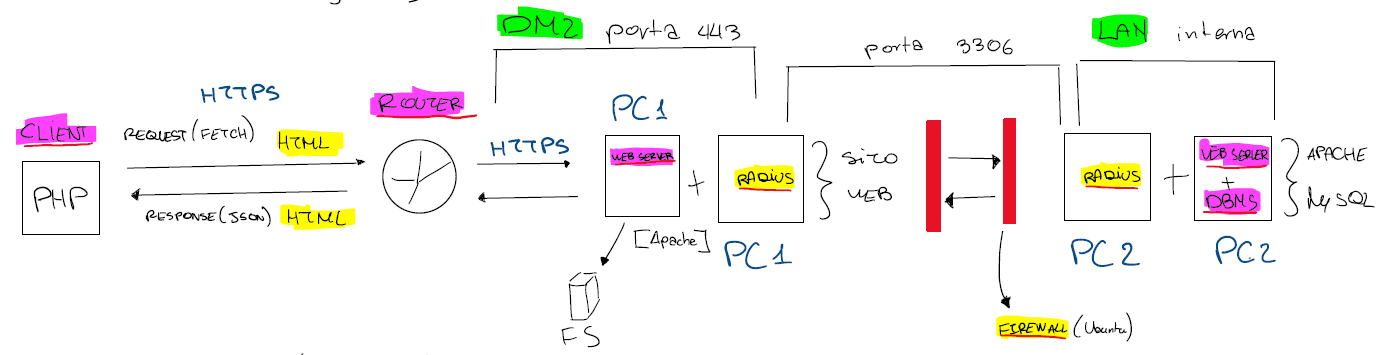 DMZ porta 443
porta 3306
LAN interna
HTTPS
CLIENT
REQUEST (FETCH) HTML
PHP
RESPONSE (JSON) HTML
ROUTER
HTTPS
PC1
WEB SERVER
+
RADIUS
PC1
[Apache]
FS
SITO
WEB
FIREWALL (Ubuntu)
RADIUS
PC2
+
WEB SERVER
+
DBMS
PC2
APACHE
MySQL